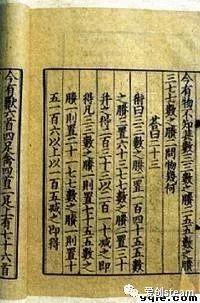 今有物不知其數三三數之賸二五五數之賸
三七七數之賸二問物幾何
荅曰二十三
術曰三三數之賸二置一百四十五五數
之賸三置六十三七七數之賸二置三十
并之得二百三十三以二百一十減之即
得凡三三數之賸一則置七十五五數之
賸一則置二十一七七數之賸一則置十
五一百六以上以一百五減之即得
今有獸六首四足禽四首二足上有七十六首
爱创steam